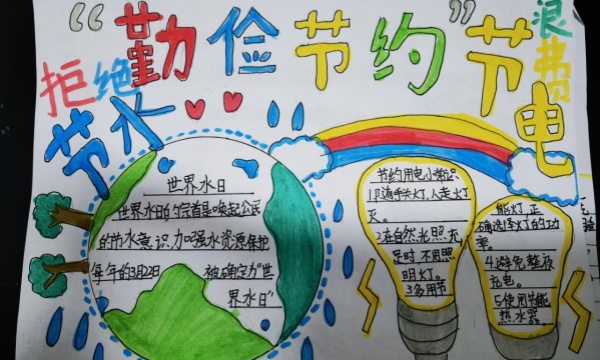 “勤俭节约”
拒绝
浪费
节水
节电
世界水日
世界水日的宗旨是唤起公民
的节水意识,加强水资源保护
每年的3月22日
被确定为“世
界水日”
节约用电小常识
1.随手关灯,人走灯
灭。
2.在自然光照充
足时,不用照
明灯。
3.多用节
能灯,正
确选择灯的功
率。
4.避免整夜
充电。
5.使用节能
热水器。